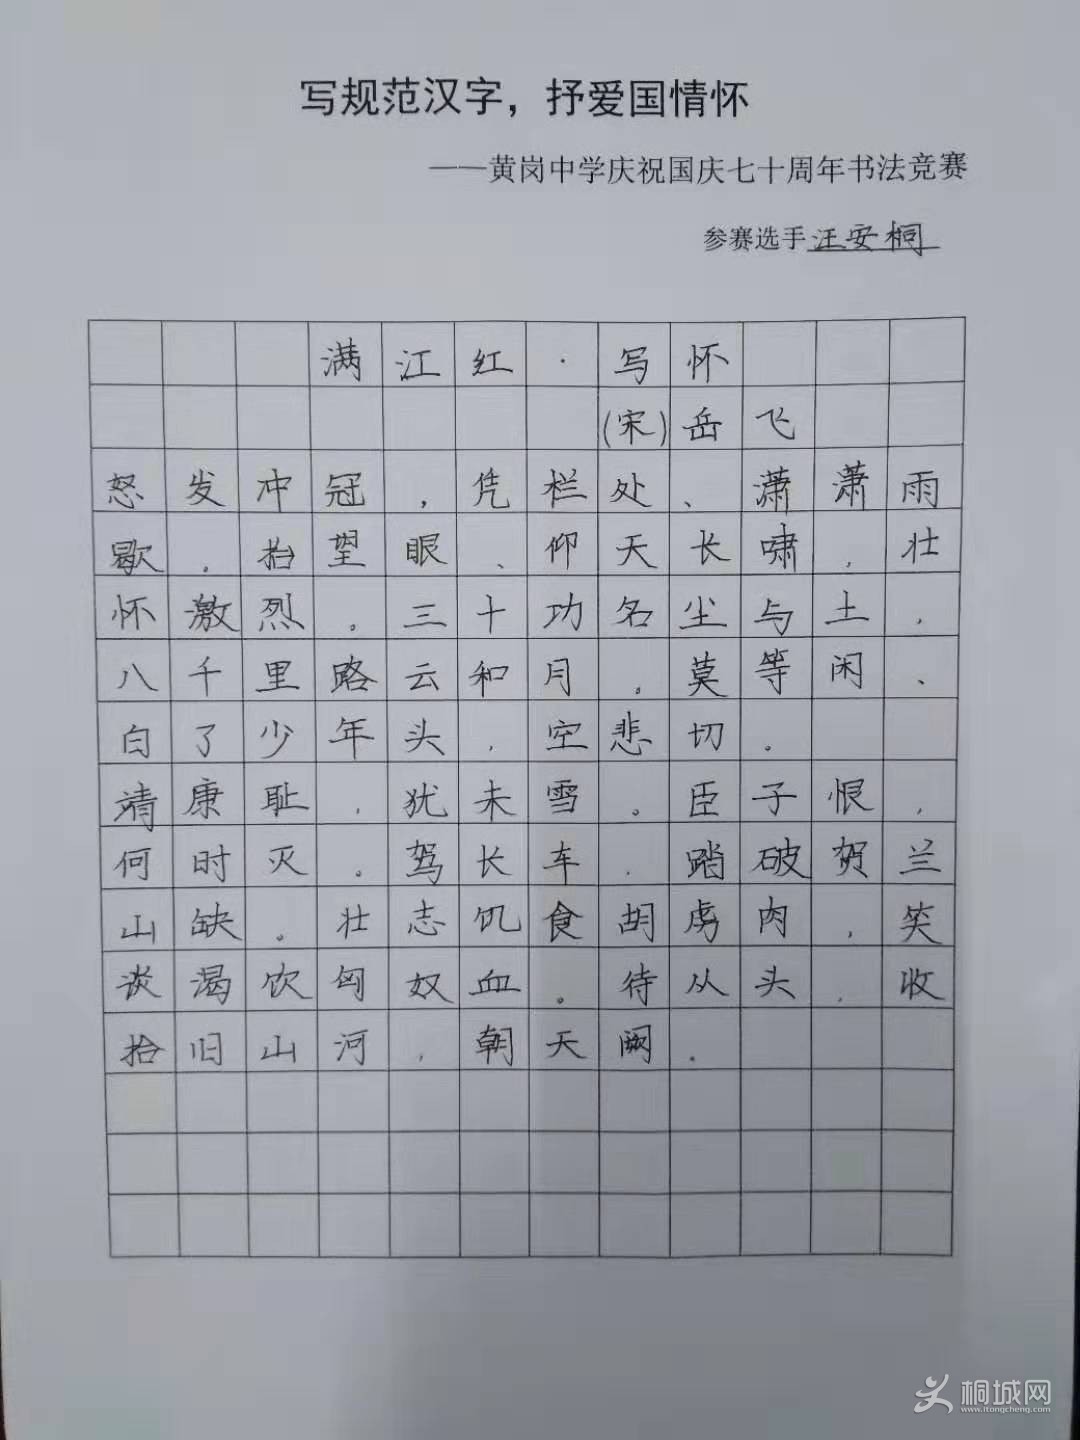 写规范汉字，抒爱国情怀
——黄岗中学庆祝国庆七十周年书法竞赛
参赛选手汪安桐
满江红·写怀
（宋）岳飞
怒发冲冠，凭栏处、潇潇雨
歇。抬望眼、仰天长啸，壮
怀激烈。三十功名尘与土，
八千里路云和月。莫等闲、
白了少年头，空悲切。
靖康耻，犹未雪。臣子恨，
何时灭。驾长车，踏破贺兰
山缺。壮志饥食胡虏肉，笑
谈渴饮匈奴血。待从头，收
拾旧山河，朝天阙。
桐城网
www.itongcheng.com